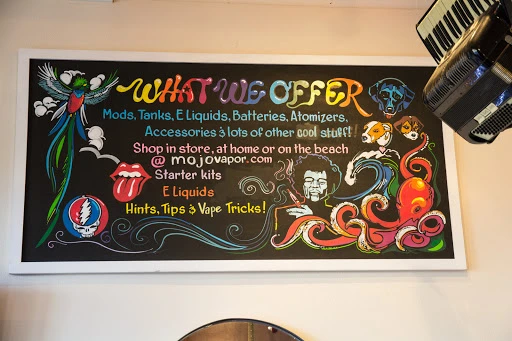 WHAT WE OFFER
Mods, Tanks, E Liquids, Batteries, Atomizers,
Accessories & lots of other cool stuff!!
Shop in store, at home or on the beach
@ mojovapor.com
Starter kits
E Liquids
Hints, Tips & Vape Tricks!